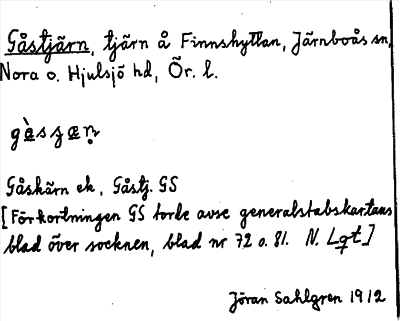 Gåstjärn, tjärn å Finnshyttan, Järnboås sn,
Nora o. Hjulsjö hd, Ör. l.
Gåskärn ek, Gåstj. GS
[Förkortningen GS torde avse generalstabskartans
blad över socknen, blad nr 72 o. 81. N. Lqt]
Jöran Sahlgren 1912